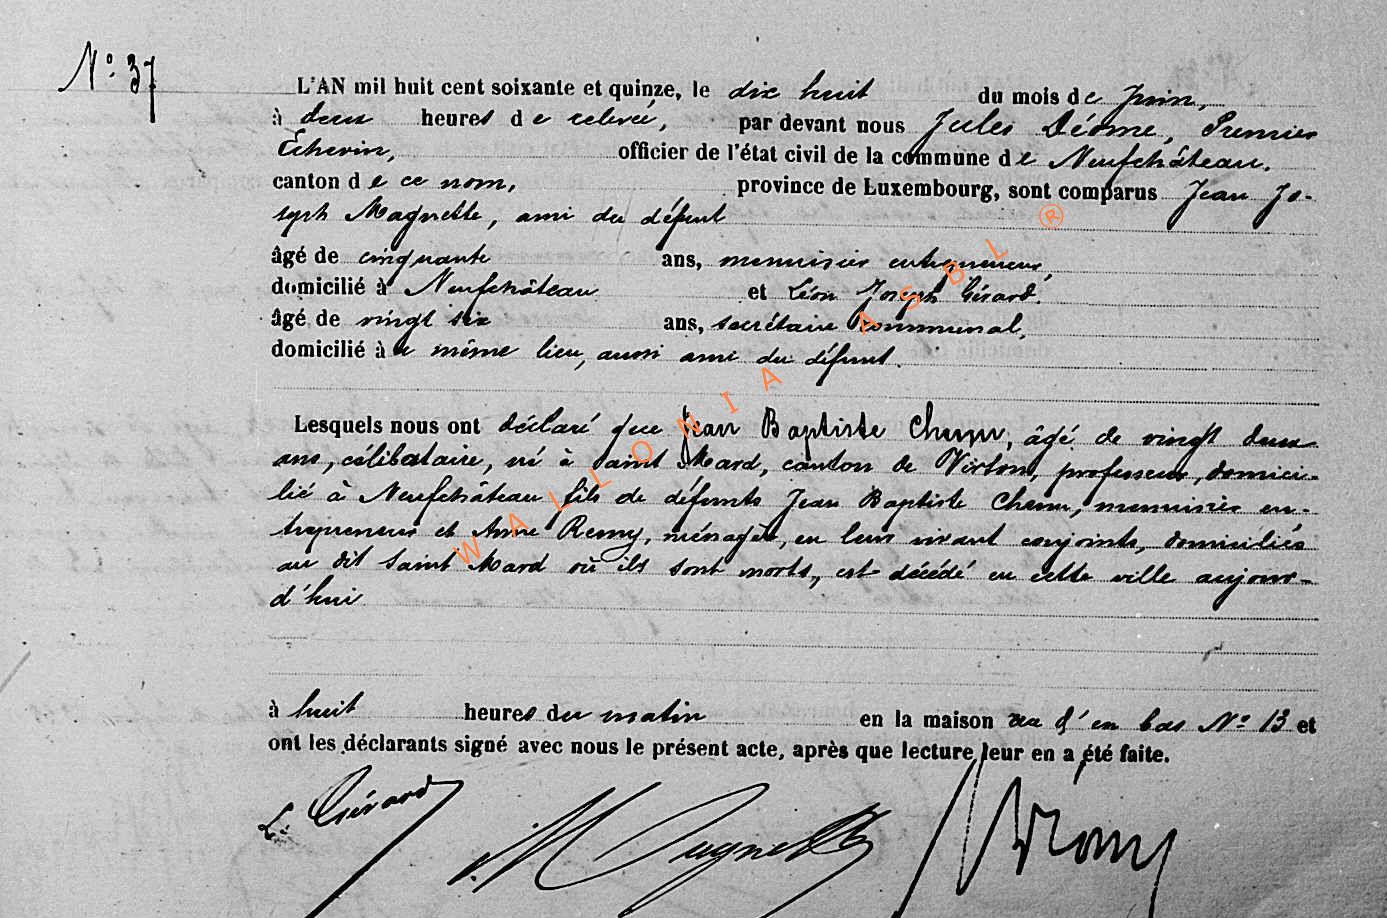 N° 37
L'AN mil huit cent soixante et quinze, le dix huit du mois de Juin,
à deux heures de relevée, par devant nous Jules Déome, Premier
Echevin, officier de l'état civil de la commune de Neufchâteau,
canton de ce nom, province de Luxembourg, sont comparus Jean Jo-
seph Magnette, ami du défunt
âgé de cinquante ans, menuisier entrepreneur,
domicilié à Neufchâteau et Léon Joseph Gérard,
âgé de vingt six ans, secrétaire communal,
domicilié à même lieu, aussi ami du défunt.
Lesquels nous ont déclaré que Jean Baptiste, âgé de vingt deux
ans, célibataire, né à Saint Mard, canton de Virton, professeur, domici-
lié à Neufchâteau fils de défunts Jean Baptiste, menuisier en-
trepreneur et Anne Remy, ménagère, en leur vivant conjoints, domiciliés
au dit Saint Mard où ils sont morts, est décédé en cette ville aujour-
d'hui
à huit heures du matin en la maison d'en bas N° 13 et
ont les déclarants signé avec nous le présent acte, après que lecture leur en a été faite.
L. Gérard Magnette
WALLONIA ASBL ®